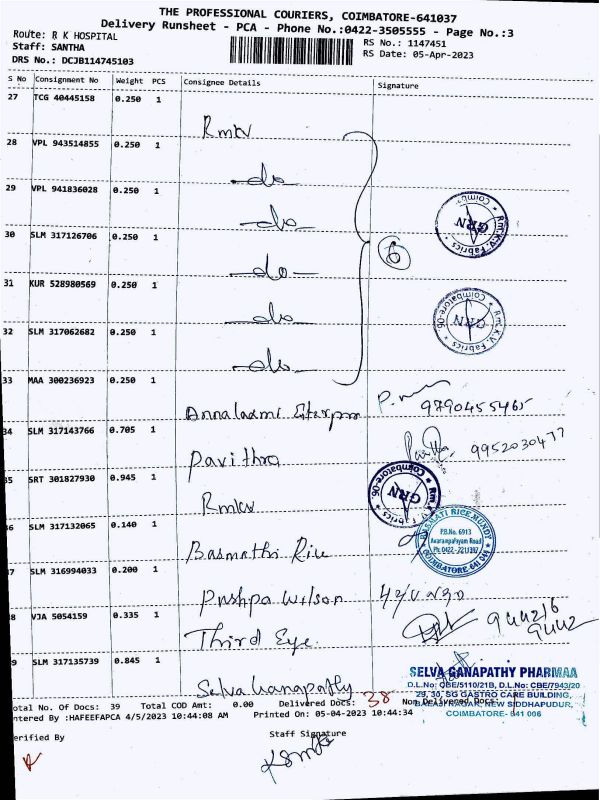 THE PROFESSIONAL COURIERS, COIMBATORE-641037
Delivery Runsheet - PCA - Phone No.:0422-3505555 - Page No.:3
Route: R K HOSPITAL
Staff: SANTHA
DRS No.: DCJB114745103
RS No.: 1147451
RS Date: 05-Apr-2023
S No Consignment No Weight PCS Consignee Details Signature
27 TCG 40445158 0.250 1
Rmkv
28 VPL 943514855 0.250 1
-do-
29 VPL 941836028 0.250 1
-do-
30 SLM 317126706 0.250 1
-do-
6
31 KUR 528980569 0.250 1
-do-
32 SLM 317062682 0.250 1
-do-
Rm.K.V. Fabrics * Coimb
GRN
Rm.K.V. Fabrics * Coimbatore-06
GRN
33 MAA 300236923 0.250 1
Annalaxmi 9790455465
34 SLM 317143766 0.705 1
Pavithra Pavithra 9952030477
35 SRT 301827930 0.945 1
Rmkv
Rm.K.V. Fabrics * Coimbatore-06
GRN
36 SLM 317132065 0.140 1
Basmathi Rice
BASMATI RICE MUNDY
P.B.No. 6913
Avarampalayam Road
COIMBATORE 641 044
37 SLM 316994033 0.200 1
Pushpa Wilson
38 VJA 5054159 0.335 1
Third Eye
944216
9442
39 SLM 317135739 0.845 1
Selva Ganapathy
SELVA GANAPATHY PHARMAA
D.L.No: CBE/5110/21B, D.L.No: CBE/7943/20
29, 30, SG GASTRO CARE BUILDING,
BALAJI NAGAR, NEW SIDDHAPUDUR,
COIMBATORE- 641 006
otal No. Of Docs: 39 Total COD Amt: 0.00 Delivered Docs: 38 Non Delivered Docs:
ntered By :HAFEEFAPCA 4/5/2023 10:44:08 AM Printed On: 05-04-2023 10:44:34
erified By Staff Signature